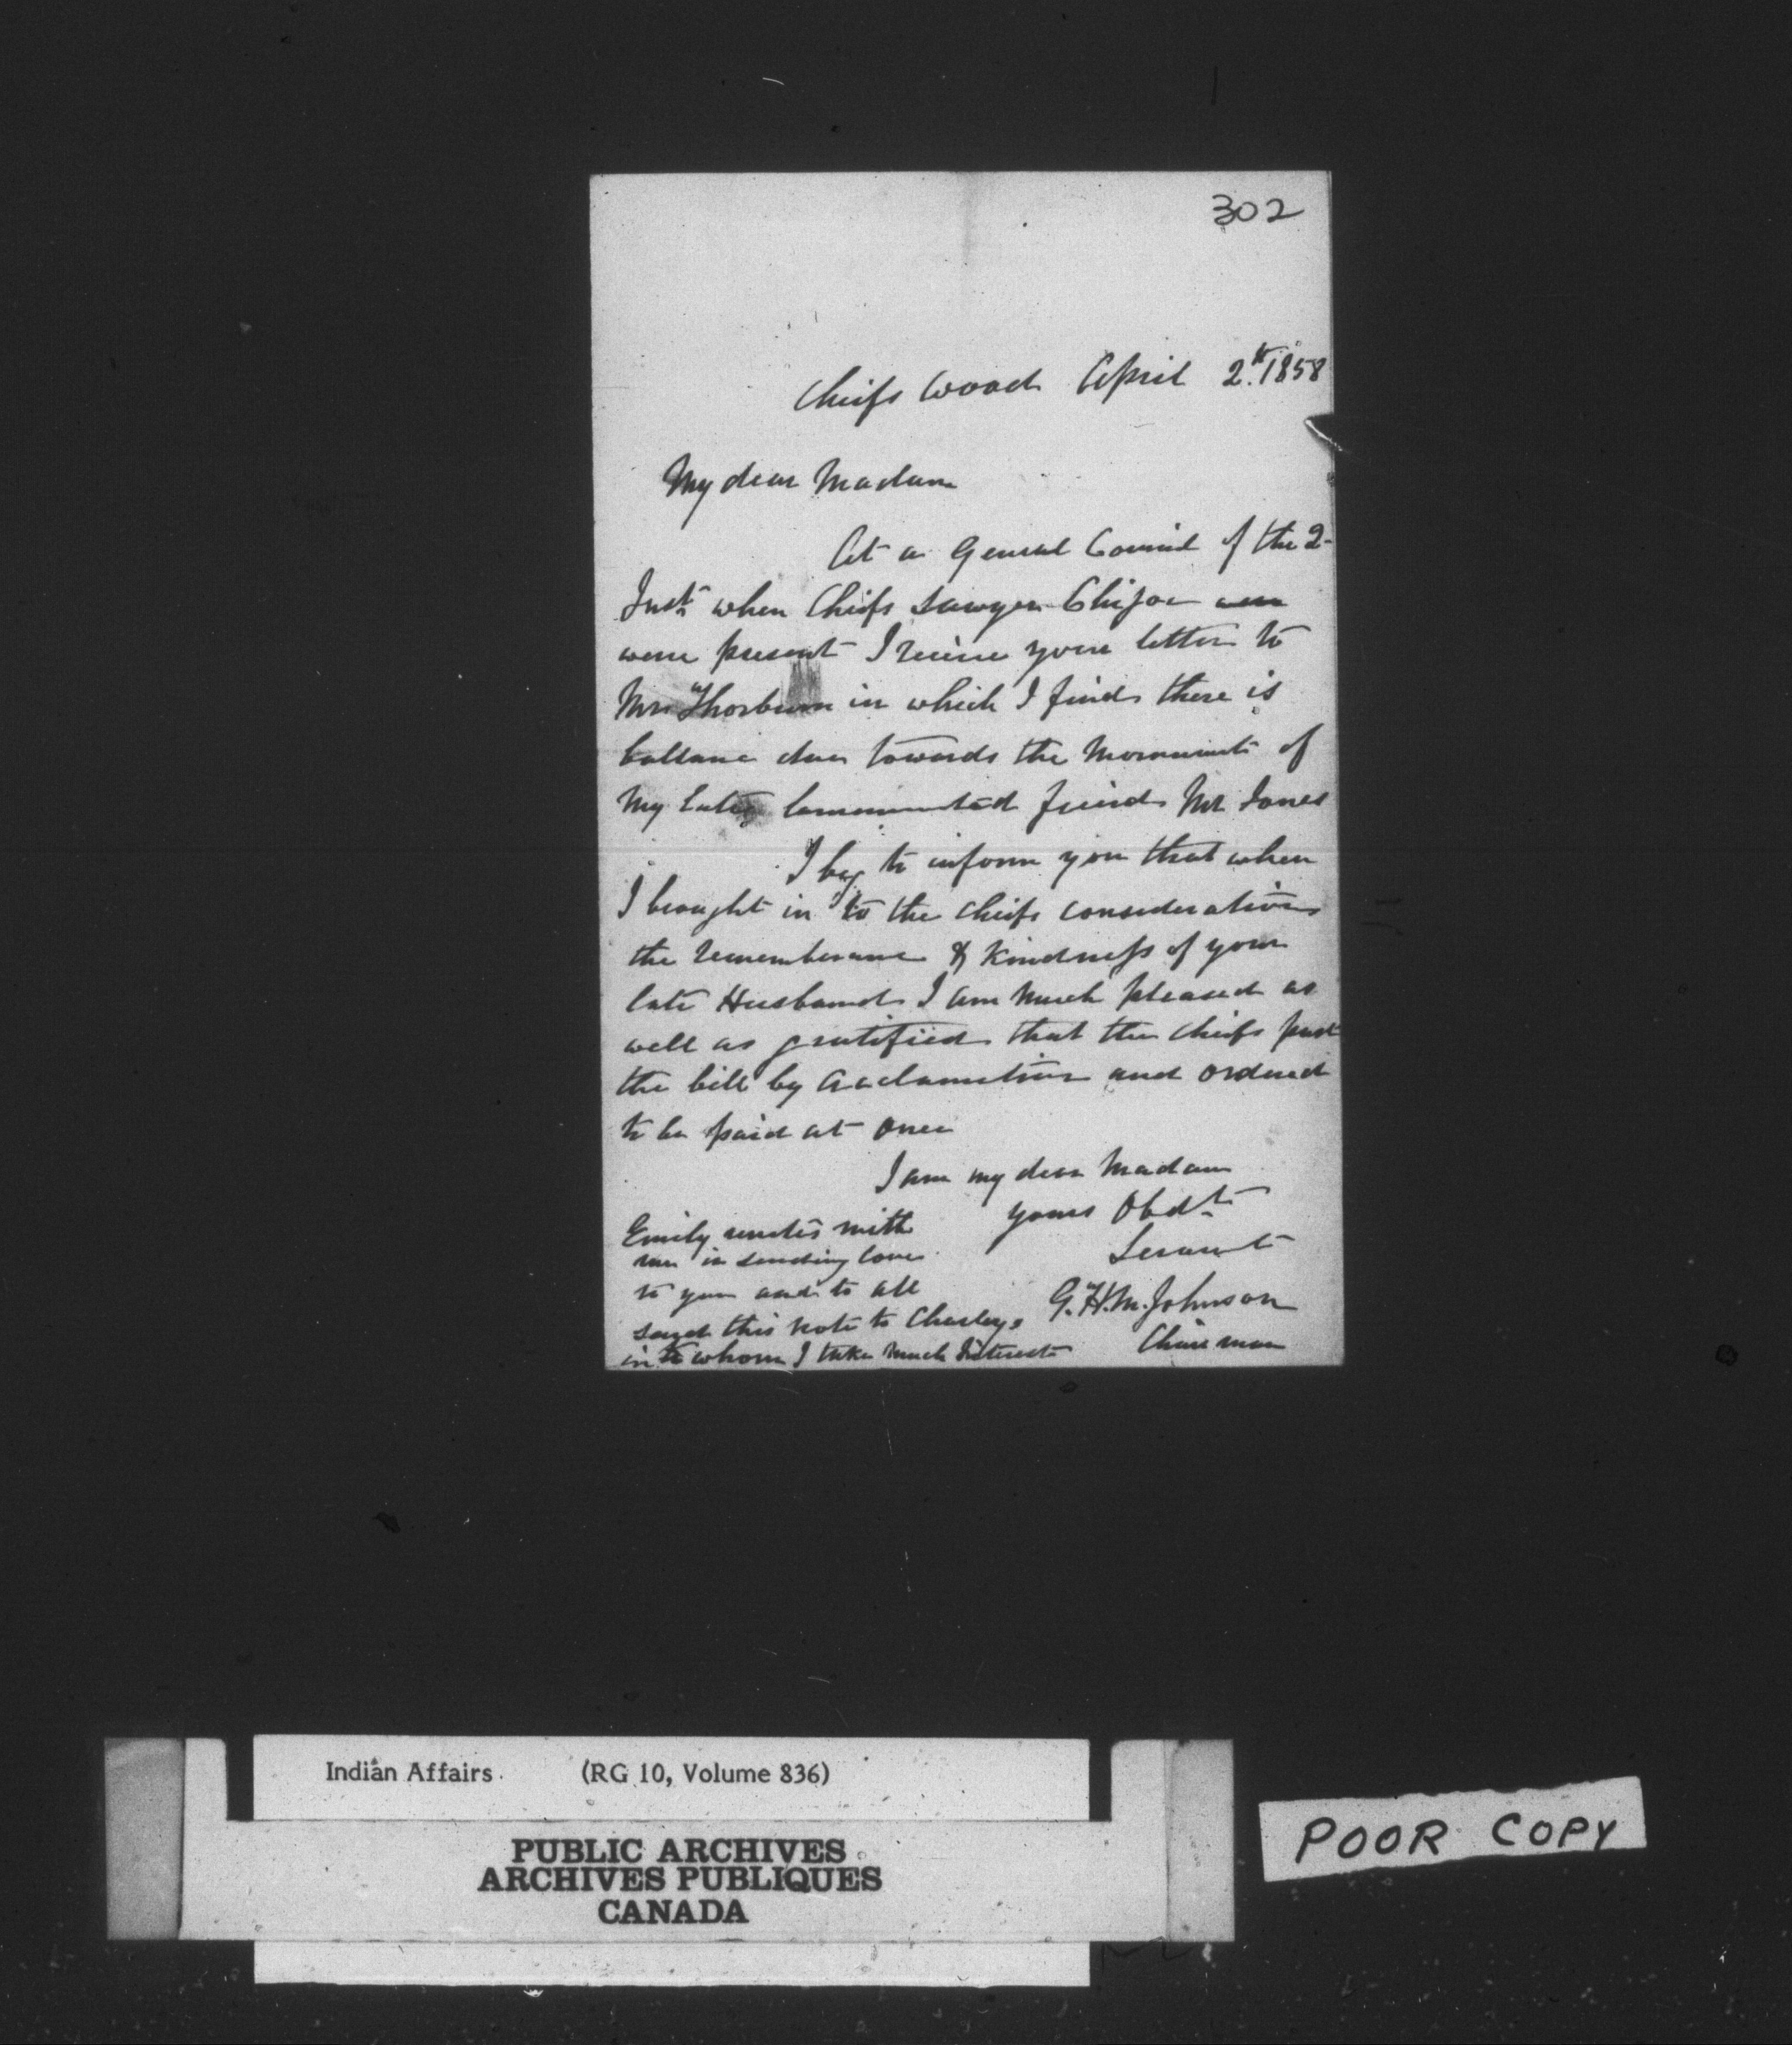 302
Cheifs Wood April 2.th 1858
My dear Madam
At a General Council of the 2
Inst. when Cheifs Sawyer Chijoe
were present I receive your letter to
Mr. Thorburn in which I finds there is
ballance due towards the Monument of
My Late lammented friend Mr Jones
I beg to inform you that when
I brought in to the Cheifs consideration
the rememberance & Kindness of your
late Husband I am much pleased as
well as gratified that the Cheifs past
the bill by acclamation and ordered
to be paid at once
I am my dear Madam
yours Obdt.
Servant
G. H. M. Johnson
Chairman
Emily unites with
me in sending love
to you and to all
send this note to Charley,
in whom I take much Interest
Indian Affairs. (RG 10, Volume 836)
PUBLIC ARCHIVES
ARCHIVES PUBLIQUES
CANADA
POOR COPY